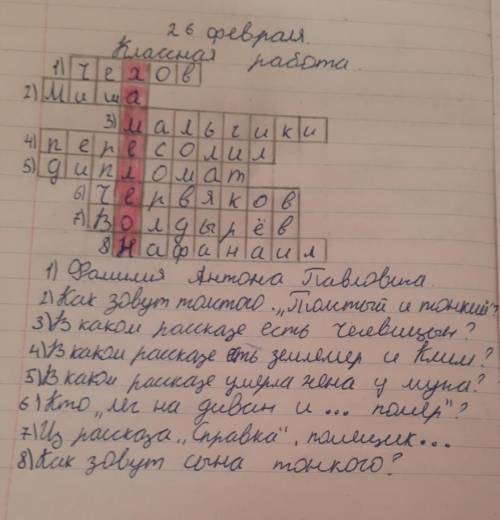 26 февраля.
Классная работа.
1) Чехов
2) Миша
3) мальчики
4) пересолил
5) дипломат
6) Червяков
7) Волдырёв
8 Нафанаил
1) Фамилия Антона Павловича.
2) Как зовут толстого. „Толстый и тонкий"?
3) В каком рассказе есть Чечевицын?
4) В каком рассказе есть землемер и Клим?
5) В каком рассказе умерла жена у мужа?
6) Кто „лег на диван и ... помер"?
7) Из рассказа „Справка", помещик...
8) Как зовут сына тонкого?